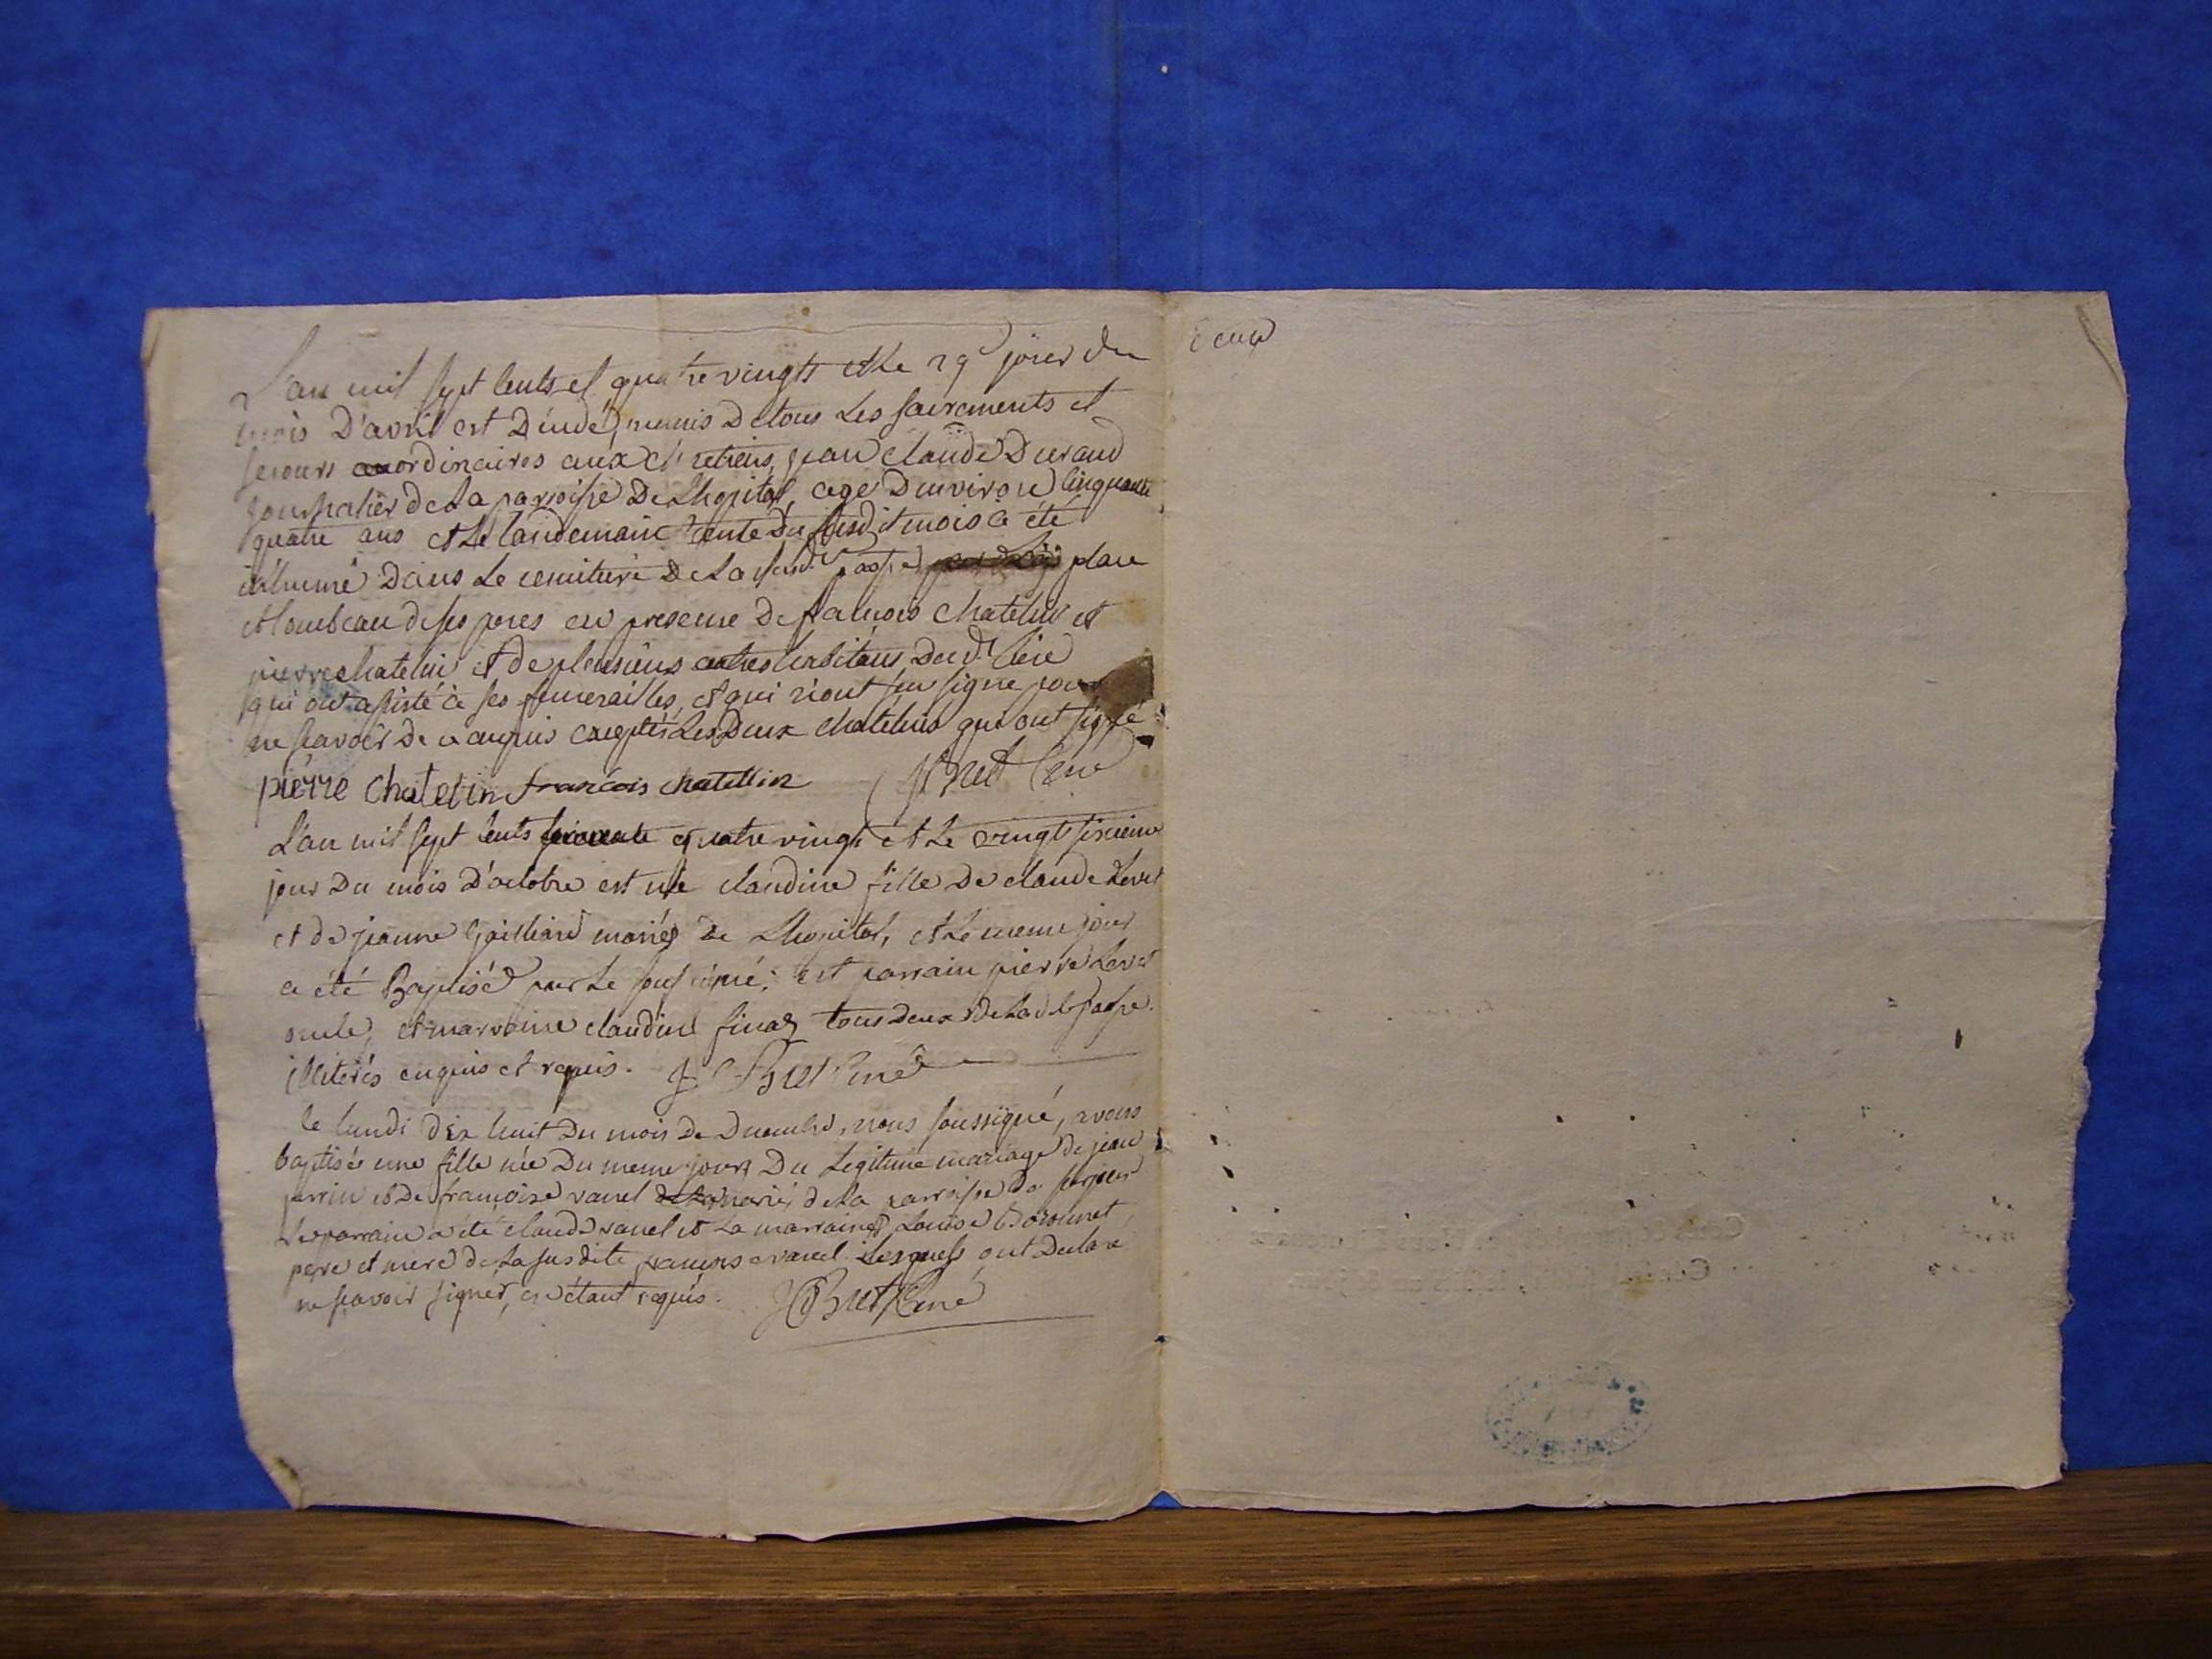 L'an mil sept cents et quatre vingts et le 29e jour du
mois D'avril est Décédé, munis De tous Les sacrements et
secours ordinaires aux chretiens, jean claude Durand
journalier de La parroisse De Lhopital, agé Denviron cinquante
quatre ans et Le landemain trente Du susdit mois a été
inhumé Dans Le cemitiere De La susd. paosse place
et tombeau de ses peres en presence De francois chatelin et
pierre chatelin et de plusieurs autres habitans Dud. lieu
qui ont assisté à ses funerailles, et qui n'ont sçu signe pour
ne sçavoir De ce enquis exceptés Les Deux chatelins qui ont signé
pierre Chatelin francois chatellin J Bret Curé
L'an mil sept cents quatre vingt et Le vingt sixieme
jour Du mois D'octobre est née claudine fille De claude Levet
et de jeanne Gailliard mariés de Lhopital, et Le meme jour
a été Baptisée par Le soussigné; est parrain pierre Levet
oncle, et marraine claudine finaz tous Deux De La d. paosse.
illiterés enquis et requis. J Bret Curé
le lundi dix huit Du mois De Decembre, nous soussigné, avons
baptisée une fille née Du meme jour Du Legitime mariage De jean
perrin et De françoise vanel mariés de La parroisse De
Le parrain a été claude vanel et La marraine Louise
pere et mere de La susdite francoise vanel Lesquels ont Declaré
ne sçavoir signer, en étant requis. J Bret Curé